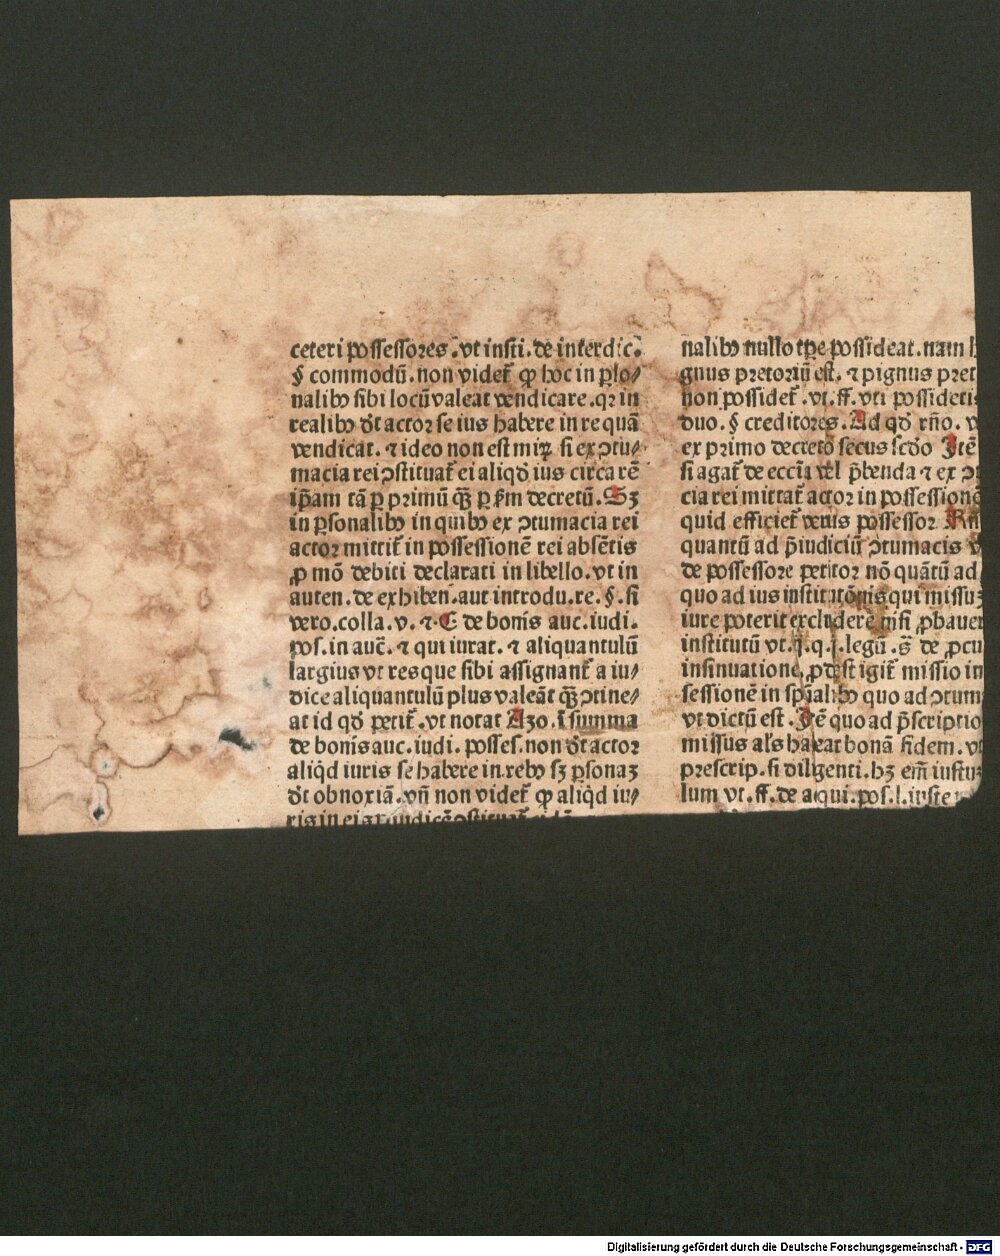 ceteri possessores. vt insti. de interdic.
§ commodū. non videt̄ ꝙ hoc in ꝑso⸗
nalibꝰ sibi locū valeat vendicare. qꝛ in
realibꝰ dt̄ actor se ius habere in re quā
vendicat. ⁊ ideo non est miꝝ si ex ꝯtu⸗
macia rei ꝯstituat̄ ei aliqđ ius circa rē
ip̄am tā ꝑ primū qꝫ̄ ꝑ s̄m decretū. Sꝫ
in ꝑsonalibꝰ in quibꝰ ex ꝯtumacia rei
actor mittit̄ in possessionē rei absētis
ꝓ mō debiti declarati in libello. vt in
auten. de exhiben. aut introdu. re. §. si
vero. colla. v. ⁊. C de bonis auc. iudi.
pos. in auc̄. ⁊ qui iurat. ⁊ aliquantulū
largius vt res que sibi assignant̄ a iu⸗
dice aliquantulū plus valeāt qꝫ̄ ꝯtine⸗
at id qđ petit̄. vt notat Azo. ī summa
de bonis auc. iudi. posses. non dt̄ actor
aliq̇d iuris se habere in rebꝰ sꝫ ꝑsonaꝫ
dt̄ obnoxiā. vn̄ non videt̄ ꝙ aliq̇d iu⸗
ris in eis
nalibꝰ nullo tp̄e possideat. nam
gnus pretoriū est. ⁊ pignus pret
non possidet̄. vt. ff. vti possidetis
duo. § creditores. Ad qđ rn̄o. v
ex primo decreto secus scđo Itē
si agat̄ de eccīa vel p̄benda ⁊ ex ꝯt
cia rei mittat̄ actor in possessionē
quid efficiet̄ verus possessor Rn̄
quantū ad p̄iudiciū ꝯtumacis v
de possessore petitor nō quātū ad
quo ad ius institutōnis qui missus
iure poterit excludere nisi ꝓbauer
institutū vt. j. q. j. legū. s̄ de ꝓcu
insinuatione ꝓdest igit̄ missio in
sessionē in sp̄alibꝰ quo ad ꝯtum
vt dictū est. Itē quo ad p̄scriptio
missus als habeat bonā fidem. vt
prescrip. si diligenti. hꝫ em̄ iustu
lum vt. ff. de aqui. pos. l. iuste
Digitalisierung gefördert durch die Deutsche Forschungsgemeinschaft - DFG